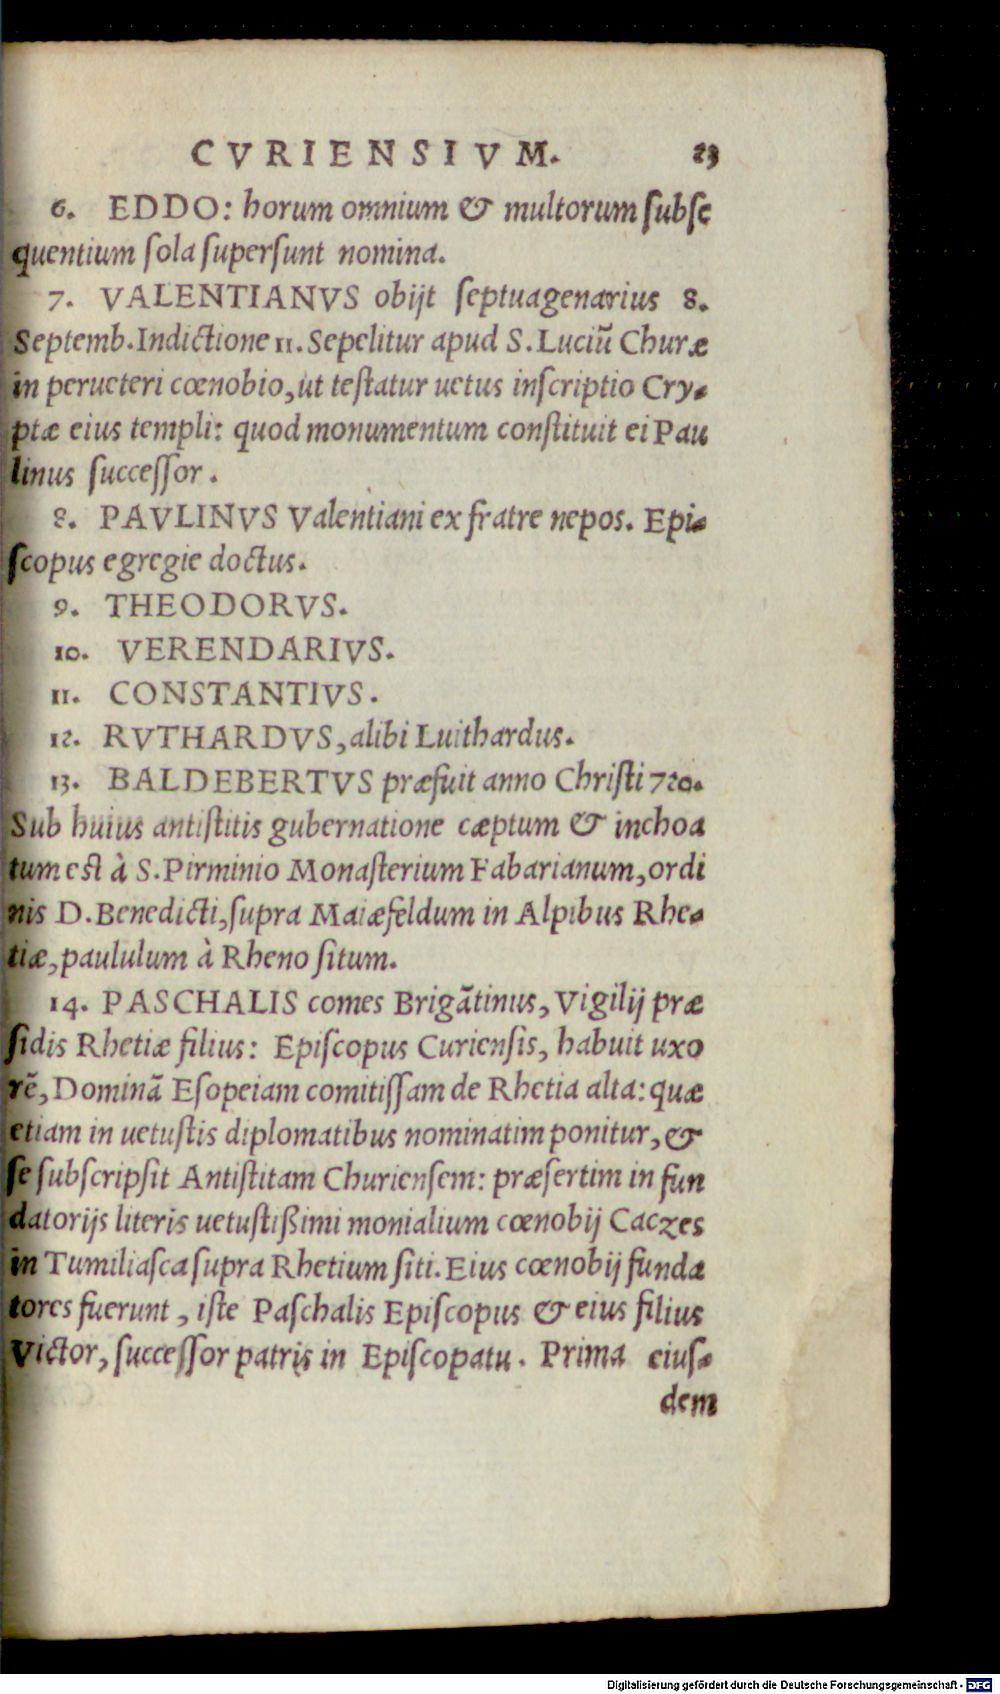 CVRIENSIVM. 23
6. EDDO: horum omnium & multorum subse
quentium sola supersunt nomina.
7. VALENTIANVS obijt septuagenarius 8.
Septemb. Indictione 11. Sepelitur apud S. Luciū Churæ
in perueteri cœnobio, ut testatur uetus inscriptio Cry-
ptæ eius templi: quod monumentum constituit ei Pau
linus successor.
8. PAVLINVS Valentiani ex fratre nepos. Epi-
scopus egregie doctus.
9. THEODORVS.
10. VERENDARIVS.
11. CONSTANTIVS.
12. RVTHARDVS, alibi Luithardus.
13. BALDEBERTVS præfuit anno Christi 720.
Sub huius antistitis gubernatione cæptum & inchoa
tum est à S. Pirminio Monasterium Fabarianum, ordi
nis D. Benedicti, supra Maiæfeldum in Alpibus Rhe-
tiæ, paululum à Rheno situm.
14. PASCHALIS comes Brigātinus, Vigilij præ
sidis Rhetiæ filius: Episcopus Curiensis, habuit uxo
rē, Dominā Esopeiam comitissam de Rhetia alta: quæ
etiam in uetustis diplomatibus nominatim ponitur, &
se subscripsit Antistitam Churiensem: præsertim in fun
datorijs literis uetustißimi monialium cœnobij Caczes
in Tumiliasca supra Rhetium siti. Eius cœnobij funda
tores fuerunt, iste Paschalis Episcopus & eius filius
Victor, successor patris in Episcopatu. Prima eius-
dem
Digitalisierung gefördert durch die Deutsche Forschungsgemeinschaft - DFG